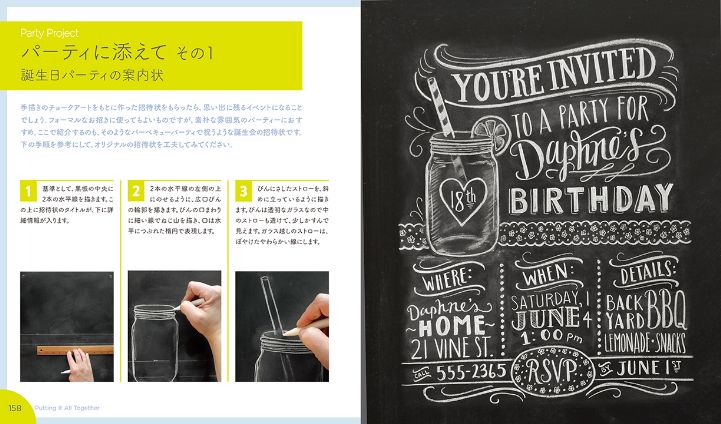 Party Project
パーティに添えて その1
誕生日パーティの案内状
手描きのチョークアートをもとに作った招待状をもらったら、思い出に残るイベントになること
でしょう。フォーマルなお招きに使ってもよいものですが、素朴な雰囲気のパーティーにおす
すめ。ここで紹介するのも、そのようなバーベキューパーティで祝うような誕生会の招待状です。
下の手順を参考にして、オリジナルの招待状を工夫してみてください。
1
基準として、黒板の中央に
2本の水平線を描きます。こ
の上に招待状のタイトルが、下に詳
細情報が入ります。
2
2本の水平線の左側の上
にのせるように、広口びん
の輪郭を描きます。びんの口まわり
に細い線でねじ山を描き、口は水
平につぶれた楕円で表現します。
3
びんにさしたストローを、斜
めに立っているように描き
ます。びんは透明なガラスなので中
のストローも透けて、少しかすんで
見えます。ガラス越しのストローは、
ぼやけたやわらかい線にします。
158
Putting It All Together
YOU'RE INVITED
TO A PARTY FOR
Daphne's
BIRTHDAY
18th
WHERE:
Daphne's
~HOME~
21 VINE ST.
WHEN:
SATURDAY,
JUNE 4
1:00 pm
DETAILS:
BACK
YARD BBQ
LEMONADE • SNACKS
CALL 555-2365
R.S.V.P.
JUNE 1ST